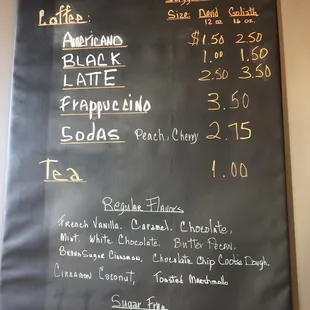 Coffee: Size: David Goliath
12 oz 16 oz.
Americano $1.50 2.50
Black 1.00 1.50
Latte 2.50 3.50
Frappuccino 3.50
Sodas Peach, Cherry 2.75
Tea 1.00
Regular Flavors
French Vanilla, Caramel, Chocolate,
Mint, White Chocolate, Butter Pecan,
Brown Sugar Cinnamon, Chocolate Chip Cookie Dough,
Cinnamon Coconut, Toasted Marshmallo
Sugar Free